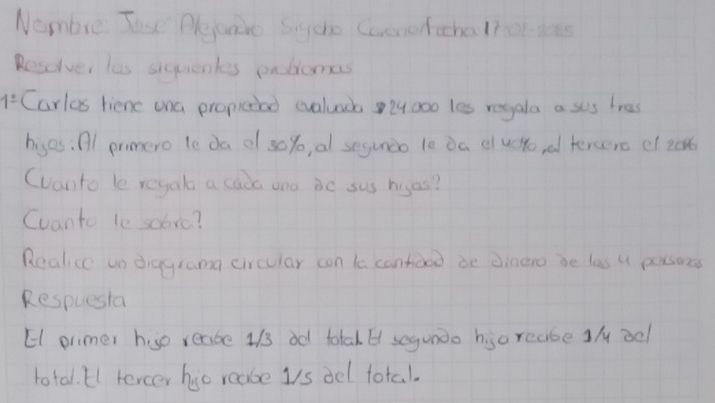 Nombre: José Alejandro Fecha 17-01-2025
Resolver los siguientes problemas
1º Carlos tiene una propiedad evaluada $24 000 les regala a sus tres
hijos. Al primero le da el 30%, al segundo le da el 40%, al tercero el 20%
Cuanto le regalo a cada uno de sus hijos?
Cuanto le sobro?
Realice un diagrama circular con la cantidad de dinero de las 4 personas
Respuesta
El primer hijo recibe 1/3 del total. El segundo hijo recibe 1/4 del
total. El tercer hijo recibe 1/5 del total.